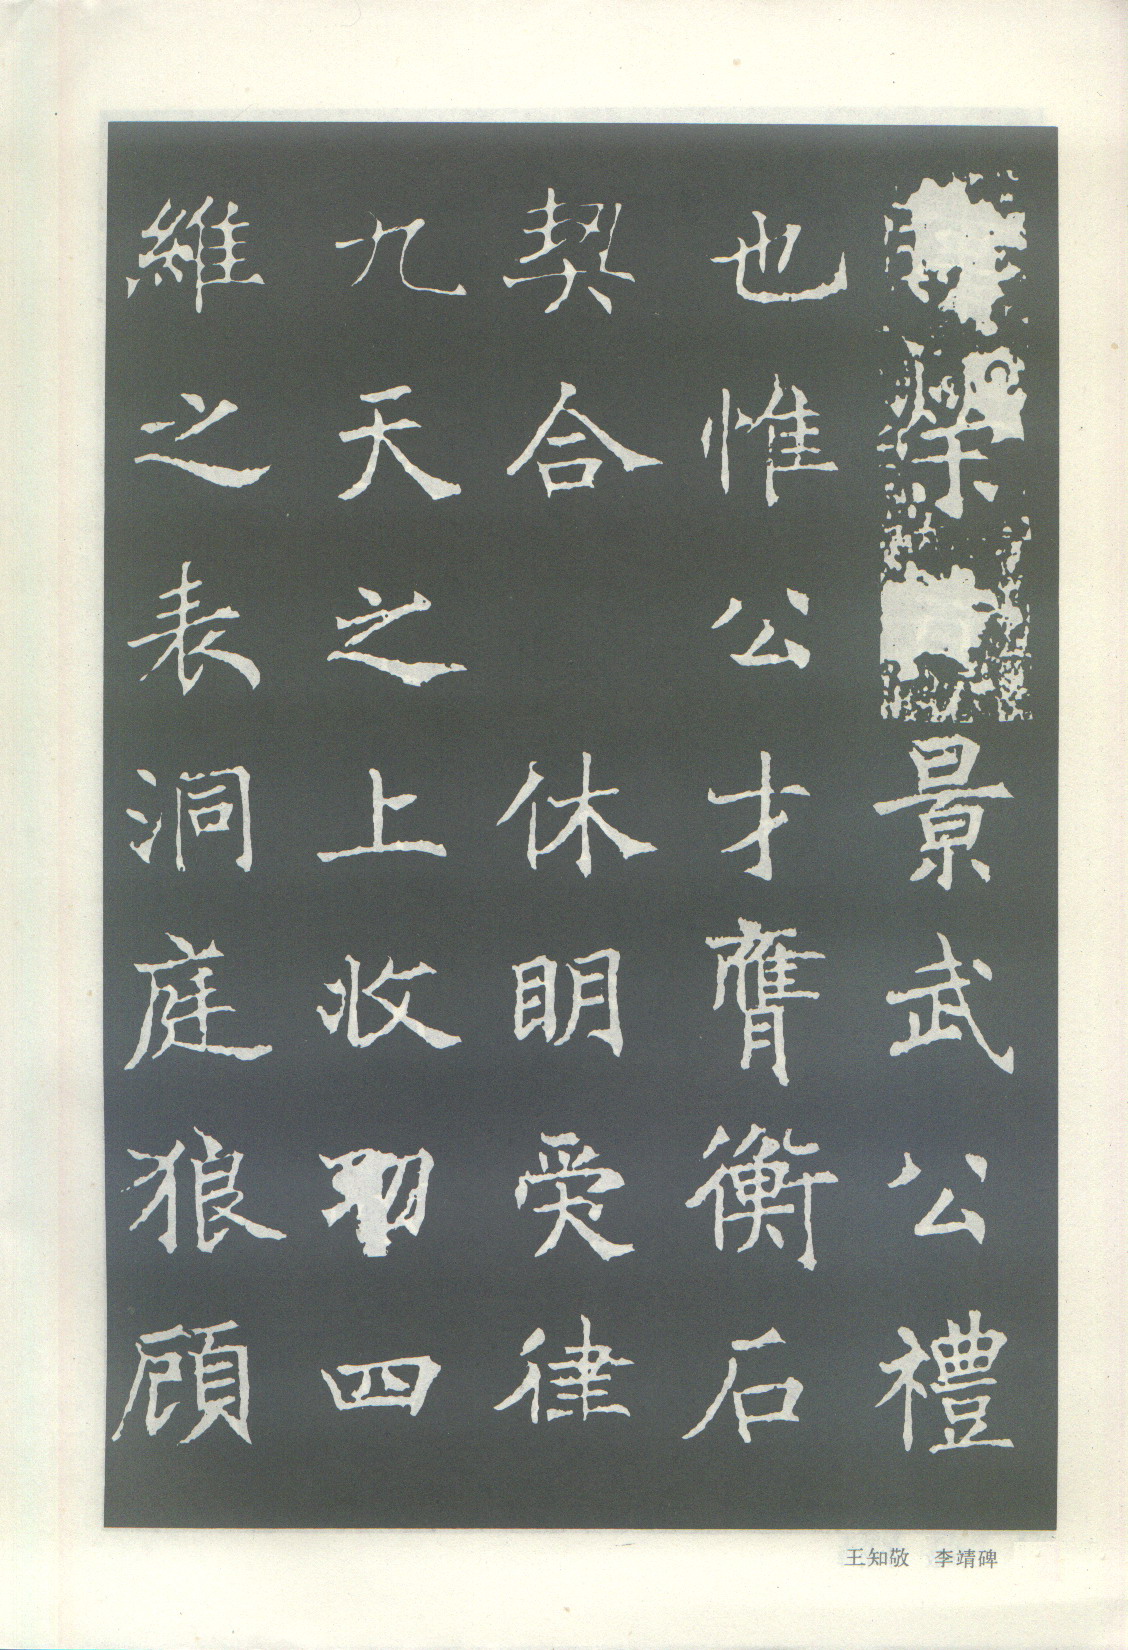 榮景武公禮
也惟公才膺衡石
契合休明爰律
九天之上收功四
維之表洞庭狼顧
王知敬 李靖碑